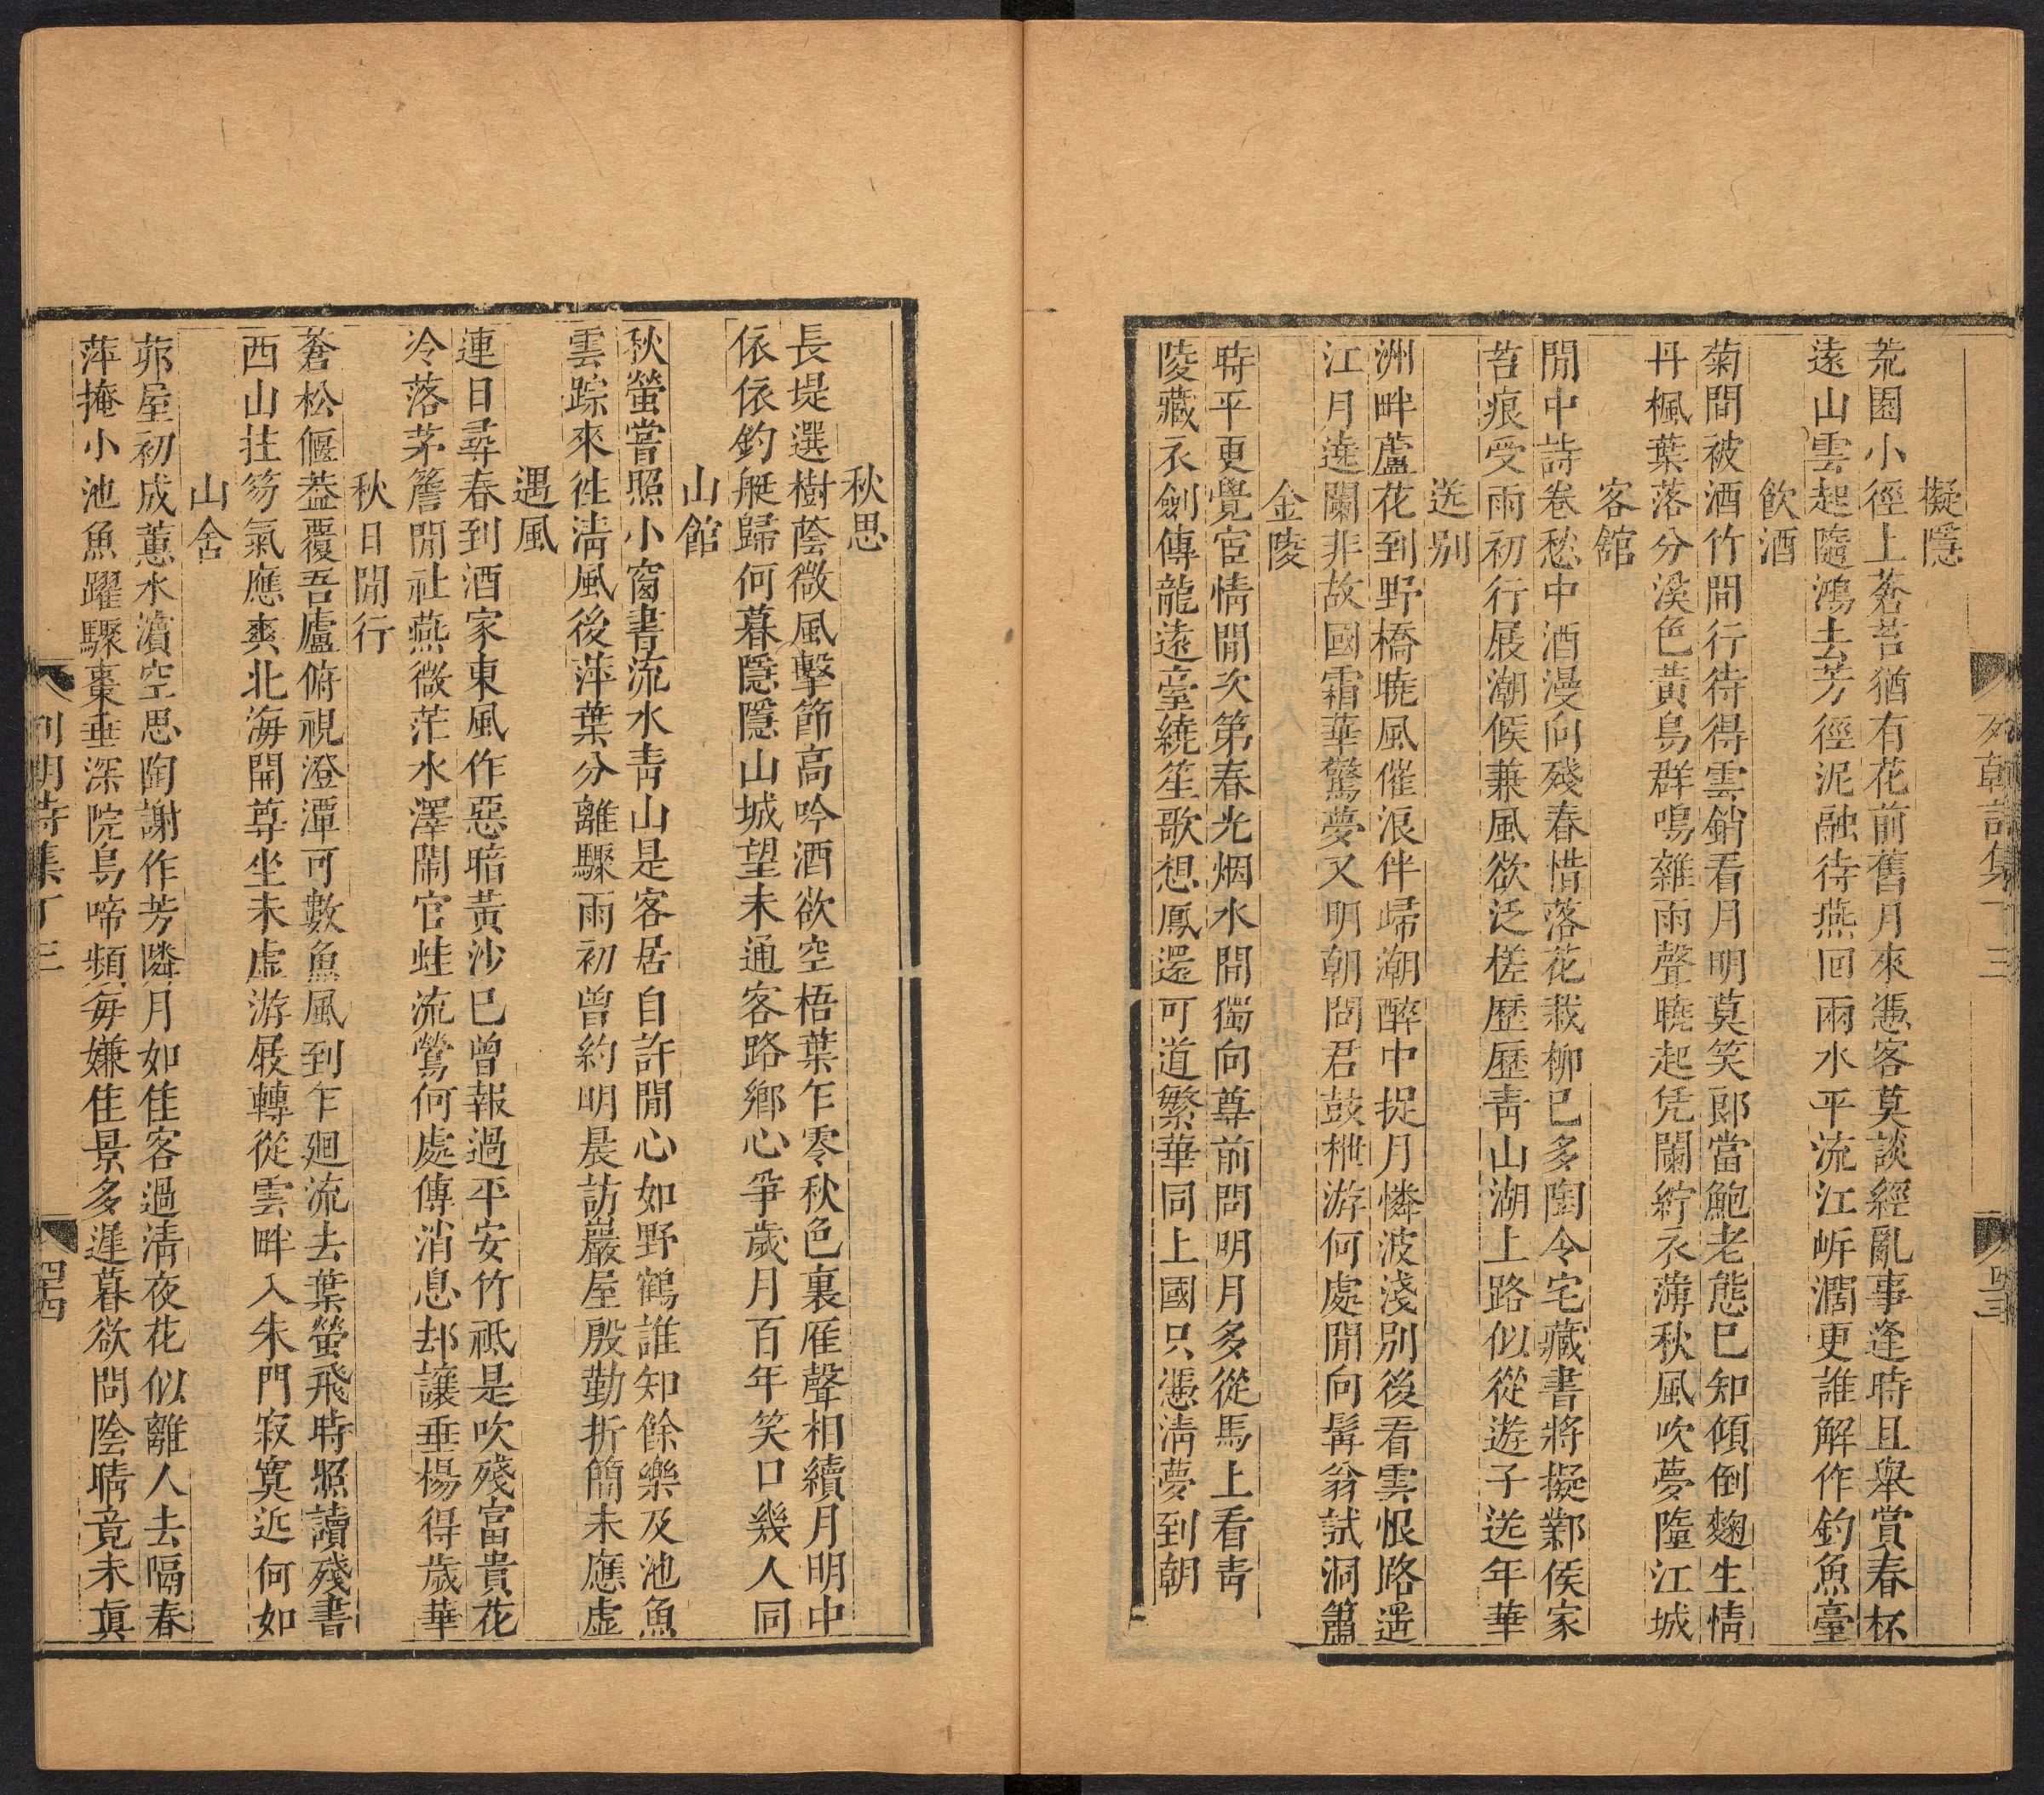 列朝詩集丁三
四三
擬隱
荒園小徑上蒼苔猶有花前舊月來憑客莫談經亂事逢時且舉賞春杯
遠山雲起隨鴻去芳徑泥融待燕回雨水平流江岍濶更誰解作釣魚臺
飮酒
菊間被酒竹間行待得雲銷看月明莫笑郎當鮑老態已知傾倒麴生情
丹楓葉落分溪色黃鳥群鳴雜雨聲曉起凭闌紵衣薄秋風吹夢墮江城
客舘
閒中詩卷愁中酒漫向殘春惜落花栽柳已多陶令宅藏書將擬鄴侯家
苔痕受雨初行展潮候兼風欲泛槎歷歷靑山湖上路似從遊子送年華
送别
洲畔蘆花到野橋曉風催浪伴歸潮醉中捉月憐波淺别後看雲恨路遥
江月遶闌非故國霜華驚夢又明朝問君鼓枻游何處閒向髯翁試洞簫
金陵
時平更覺宦情閒次第春光烟水間獨向尊前問明月多從馬上看靑
陵藏衣劍傳龍遠臺繞笙歌想鳳還可道繁華同上國只憑淸夢到朝
秋思
長堤選樹蔭微風擊節高吟酒欲空梧葉乍零秋色裏雁聲相續月明中
依依釣艇歸何暮隱隱山城望未通客路鄉心爭歲月百年笑口幾人同
山館
秋螢嘗照小窗書流水靑山是客居自許閒心如野鶴誰知餘樂及池魚
雲踪來徃淸風後萍葉分離驟雨初曾約明晨訪巖屋殷勤折簡未應虛
遇風
連日尋春到酒家東風作惡暗黃沙已曾報過平安竹祗是吹殘富貴花
冷落茅簷閒社燕微茫水澤鬧官蛙流鶯何處傳消息却讓垂楊得歲華
秋日閒行
蒼松偃葢覆吾廬俯視澄潭可數魚風到乍廻流去葉螢飛時照讀殘書
西山拄笏氣應爽北海開尊坐未虛游展轉從雲畔入朱門寂寞近何如
山舍
茆屋初成蕙水濱空思陶謝作芳隣月如佳客過淸夜花似離人去隔春
萍掩小池魚躍驟棗垂深院鳥啼頻每嫌佳景多遲暮欲問陰晴竟未眞
列朝詩集丁三
四四